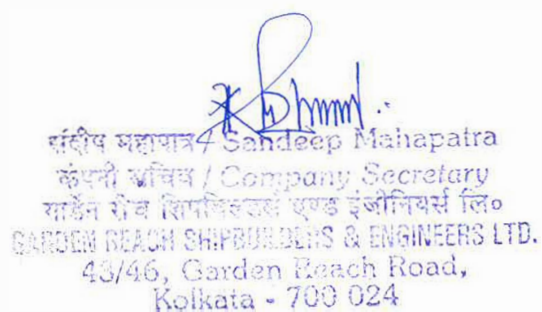 संदीप महापात्र / Sandeep Mahapatra
कंपनी सचिव / Company Secretary
गार्डेन रीच शिपबिल्डर्स एण्ड इंजीनियर्स लि०
GARDEN REACH SHIPBUILDERS & ENGINEERS LTD.
43/46, Garden Reach Road,
Kolkata - 700 024